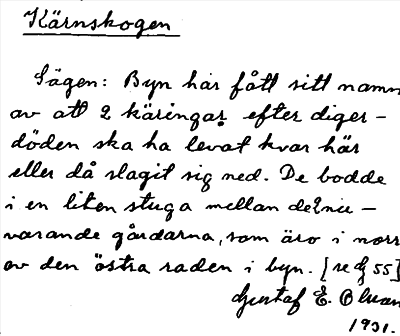 Kärnskogen
Sägen: Byn har fått sitt namn
av att 2 käringar efter diger-
döden ska ha levat kvar här
eller då slagit sig ned. De bodde
i en liten stuga mellan de2nu-
varande gårdarna, som äro i norr
av den östra raden i byn. [se 55]
Gustaf E. Olsson
1931.